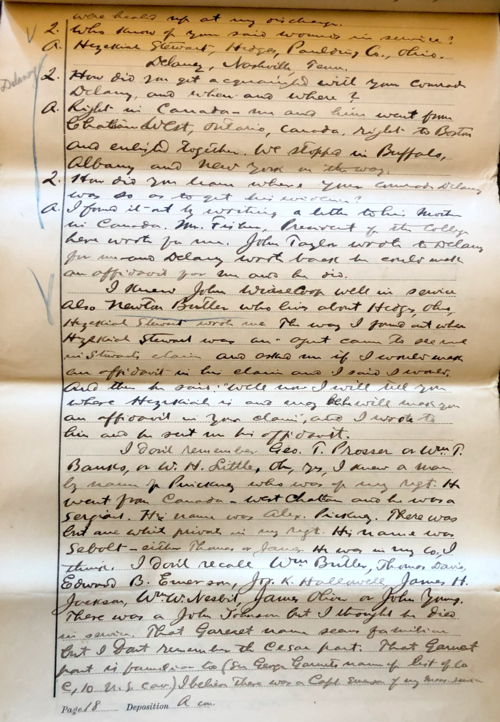 were heals up at my discharge.
Q. Who know of you said wounds in service?
A. Hezekiah Stewart, Hedges, Paulding Co., Ohio.
Delaney, Nashville Tenn.
Delaney
Q. How did you get acquainted with your comrade
Delany, and when and where?
A. Right in Canada - me and him went from
Chatham West, Ontario, Canada, right to Boston
and enlistd together. We stopped in Buffalo,
Albany and New York on the way.
Q. How did you learn where your comrade Delany
was so as to get his evidence?
A. I found it out by writing a letter to his Mother
in Canada. Mr. Fisher, President of the College
here wrote for me. John Taylor wrote to Delany
for me and Delany wrote back he could make
an affidavit for me and he did.
I knew John well in service
Also Newton Butler who lives about Hedges, Ohio,
Hezekiah Stewart wrote me. The way I found out where
Hezekiah Stewart was an agent came to see me
in Stewarts claim and asked me if I would make
an affidavit in his claim and I said I would.
And then he said: "Well now I will tell you
where Hezekiah is and may be he will make you
an affidavit in your claim", and I wrote to
him and he sent me his affidavit.
I don't remember Geo. T. Prosser or Wm. T.
Banks, or W. H. Little, Oh, yes, I knew a man
by name of Pinckney who was of my regt. He
went from Canada - West Chatham and he was a
Sergeant. His name was Alex. Pinckney. There was
but one white private in my regt. His name was
Sebolt - either Thomas or James. He was in my Co., I
think. I don't recall Wm Butler, Thomas Davis,
Edward B. Emerson, Jos. K. Hallowell, James H.
Jackson, Wm. W. Nesbit, James Oliver or John Young.
There was a John Johnson but I thought he died
in service. That Garnet name seems familiar
but I don't remember the Cesar part. That Garnet
part is familiar to (See George Garnets name of list of Co
C, 10 U.S. Cav.) I believe there was a Capt. of my
Page 18 Deposition A